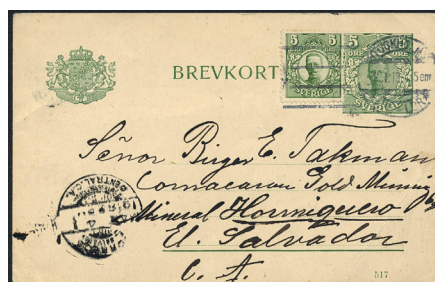 BREVKORT
5 5
5
SVERIGE
SVERIGE
Señor Birger E. Takman
Comacaran Gold Mining
Mineral Hormiguero
El Salvador
C. A.
517